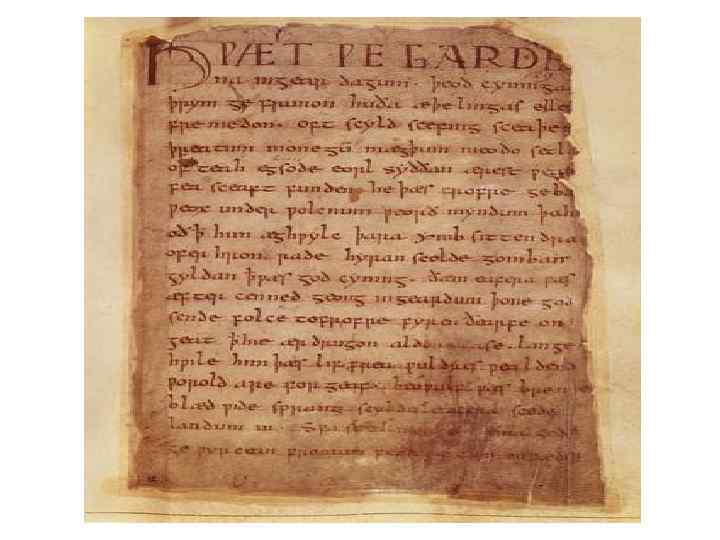 HǷÆT ǷE GARDE
na ingear dagum. þeod cyninga
þrym ge frunon huða æþelingas elle
fremedon. oft scyld scefing sceaþe
þreatum monegū mægþum meodo setl
of teah egsode eorl syððan ærest ƿear
fea sceaft funden he þæs frofre geba
ƿeox under ƿolcnum ƿeorð myndum þah
oð þ him æghƿylc þara ymb sittendra
ofer hron rade hyran scolde gomban
gyldan þæt ƿæs god cyning. ðæm eafera ƿæs
æfter cenned geong ingeardum þone god
sende folce tofrofre fyren ðearfe on
geat þ hie ær drugon aldor ase. lange
hƿile him þæs liffrea ƿuldres ƿealdend
ƿorold are forgeaf. beoƿulf ƿæs breme
blæd ƿide sprang scyldes eafera scede
landum in. Sƿa sceal god
ge ƿyrcean fromum